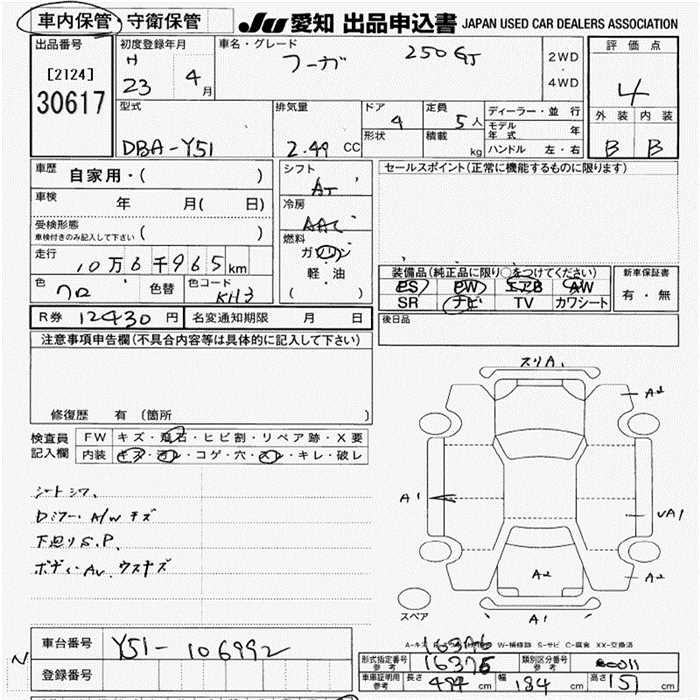 車内保管・守衛保管
JU 愛知 出品申込書 JAPAN USED CAR DEALERS ASSOCIATION
出品番号
[2124]
30617
初度登録年月
H 23 4月
車名・グレード
フーガ 250GT
2WD
・
4WD
評価点
4
外装 内装
B B
型式
DBA-Y51
排気量
2.49 CC
ドア
4
形状
定員
5人
積載
kg
ディーラー・並行
モデル年式 年
ハンドル 左・右
車歴
自家用・( )
車検
年 月( 日)
受検形態
車検付きのみ記入して下さい ( )
走行
10万6千965km
色
クロ
色替
色コード
KH3
シフト
AT
冷房
AAC
燃料
ガソリン
軽・油
( )
セールスポイント(正常に機能するものに限ります)
装備品(純正品に限り○をつけてください)
PS PW エアB AW
SR ナビ TV カワシート
新車保証書
有・無
後日品
R券 12430円
名変通知期限 月 日
注意事項申告欄(不具合内容等は具体的に記入して下さい)
修復歴 有(箇所 )
検査員
記入欄
FW キズ・飛石・ヒビ割・リペア跡・X要
内装 キズ・汚レ・コゲ・穴・スレ・キレ・破レ
シートシワ、
Dミラー・A/Wキズ
下廻りS.P.
ボディーAU ウスキズ
スリA1
A2
A1
UA1
A2
A2
A1
スペア
W-補修跡 S-サビ C-腐食 XX-交換済
車台番号
Y51-106992
登録番号
N
型式指定番号
参考
16376
16375
類別区分番号
参考
0011
車庫証明用
参考
長さ 494 cm 幅 184 cm 高さ 151 cm